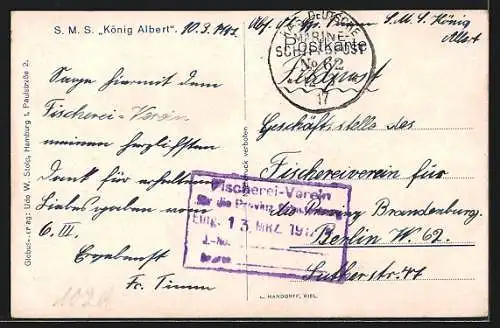 S. M. S. „König Albert“. 10.3.1917
Abs. Fr. Timm S.M.S. König
Albert
KAIS. DEUTSCHE
MARINE-
SCHIFFSPOST
No 62
12
17
Postkarte
Feldpost
Sage hiermit dem
Fischerei-Verein
meinen herzlichsten
Dank für erhaltene
Liebesgaben vom
6. III.
Ergebenst
Fr. Timm
An die
Geschäftsstelle des
Fischereiverein für
die Provinz Brandenburg.
Berlin W. 62.
Lutherstr. 47
Fischerei-Verein
für die Provinz
Eing. 13. MRZ. 1917
J.-No.
Globus-Verlag: Udo W. Stolp, Hamburg 1, Paulstraße 2.
Nachdruck verboten
L. HANDORFF, KIEL.
102A